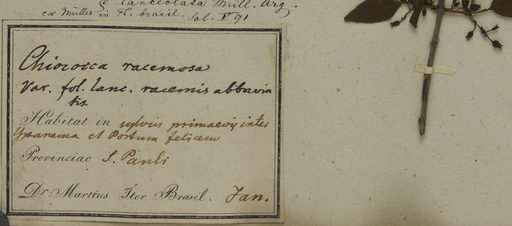 C. lanceolata Müll. Arg.
ex Müller in Fl. brasil. Sol. V 91
Chiococca racemosa
Var. fol. lanc. racemis abbrevia
tis.
Habitat in sylvis primaevis inter
Ypanema et Portum felicem
Provinciae S. Pauli
Dr. Martius Iter Brasil. Jan.